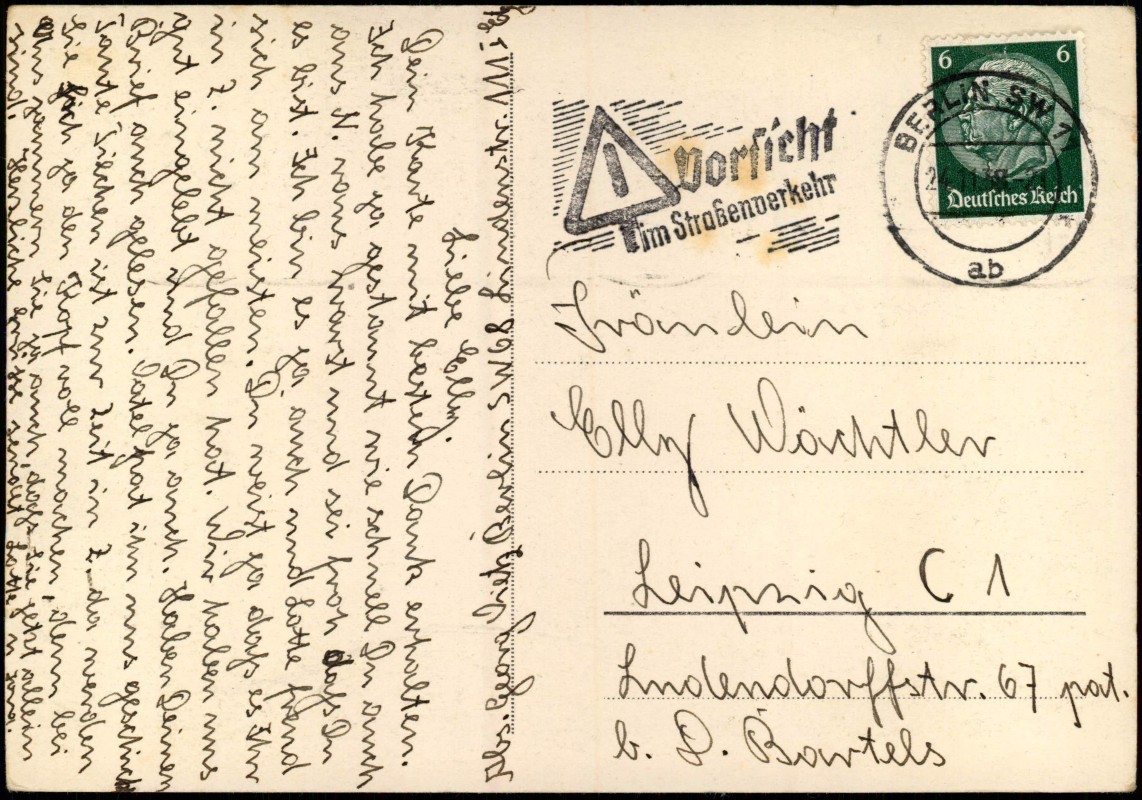 Abs. Georg Dietz Berlin SW 68 Lindenstr. 111 
Liebe Elly.
Dein Karte mit besten Dank erhalten.
Ich habe ja gestaunt wie schnell Du auch
aus N. raus warst und sei froh dass Du
es bist. Ich bin es ja auch und Lotte freud
sich am meisten. Du weist ja dass es Ihr
in Z. nicht gefallen hat. Wir haben uns
gut eingelebt und Du ja auch. Haben Deinen
Brief auch gelesen. Vatel hat ihm uns geschickt
Tante Lischen ist zur Zeit in Z. da werden
sie sich ja den Kopf voll machen, denn bei
uns jammern sie ja auch, dass sie jetzt allein
sind. Herzliche Grüsse sendet Lotte u. Georg.
6 6
Deutsches Reich
BERLIN SW
24.11.
ab
Vorsicht
im Straßenverkehr
Fräulein
Elly Wächtler
Leipzig C 1
Ludendorffstr. 67 pat.
b. D. Bartels